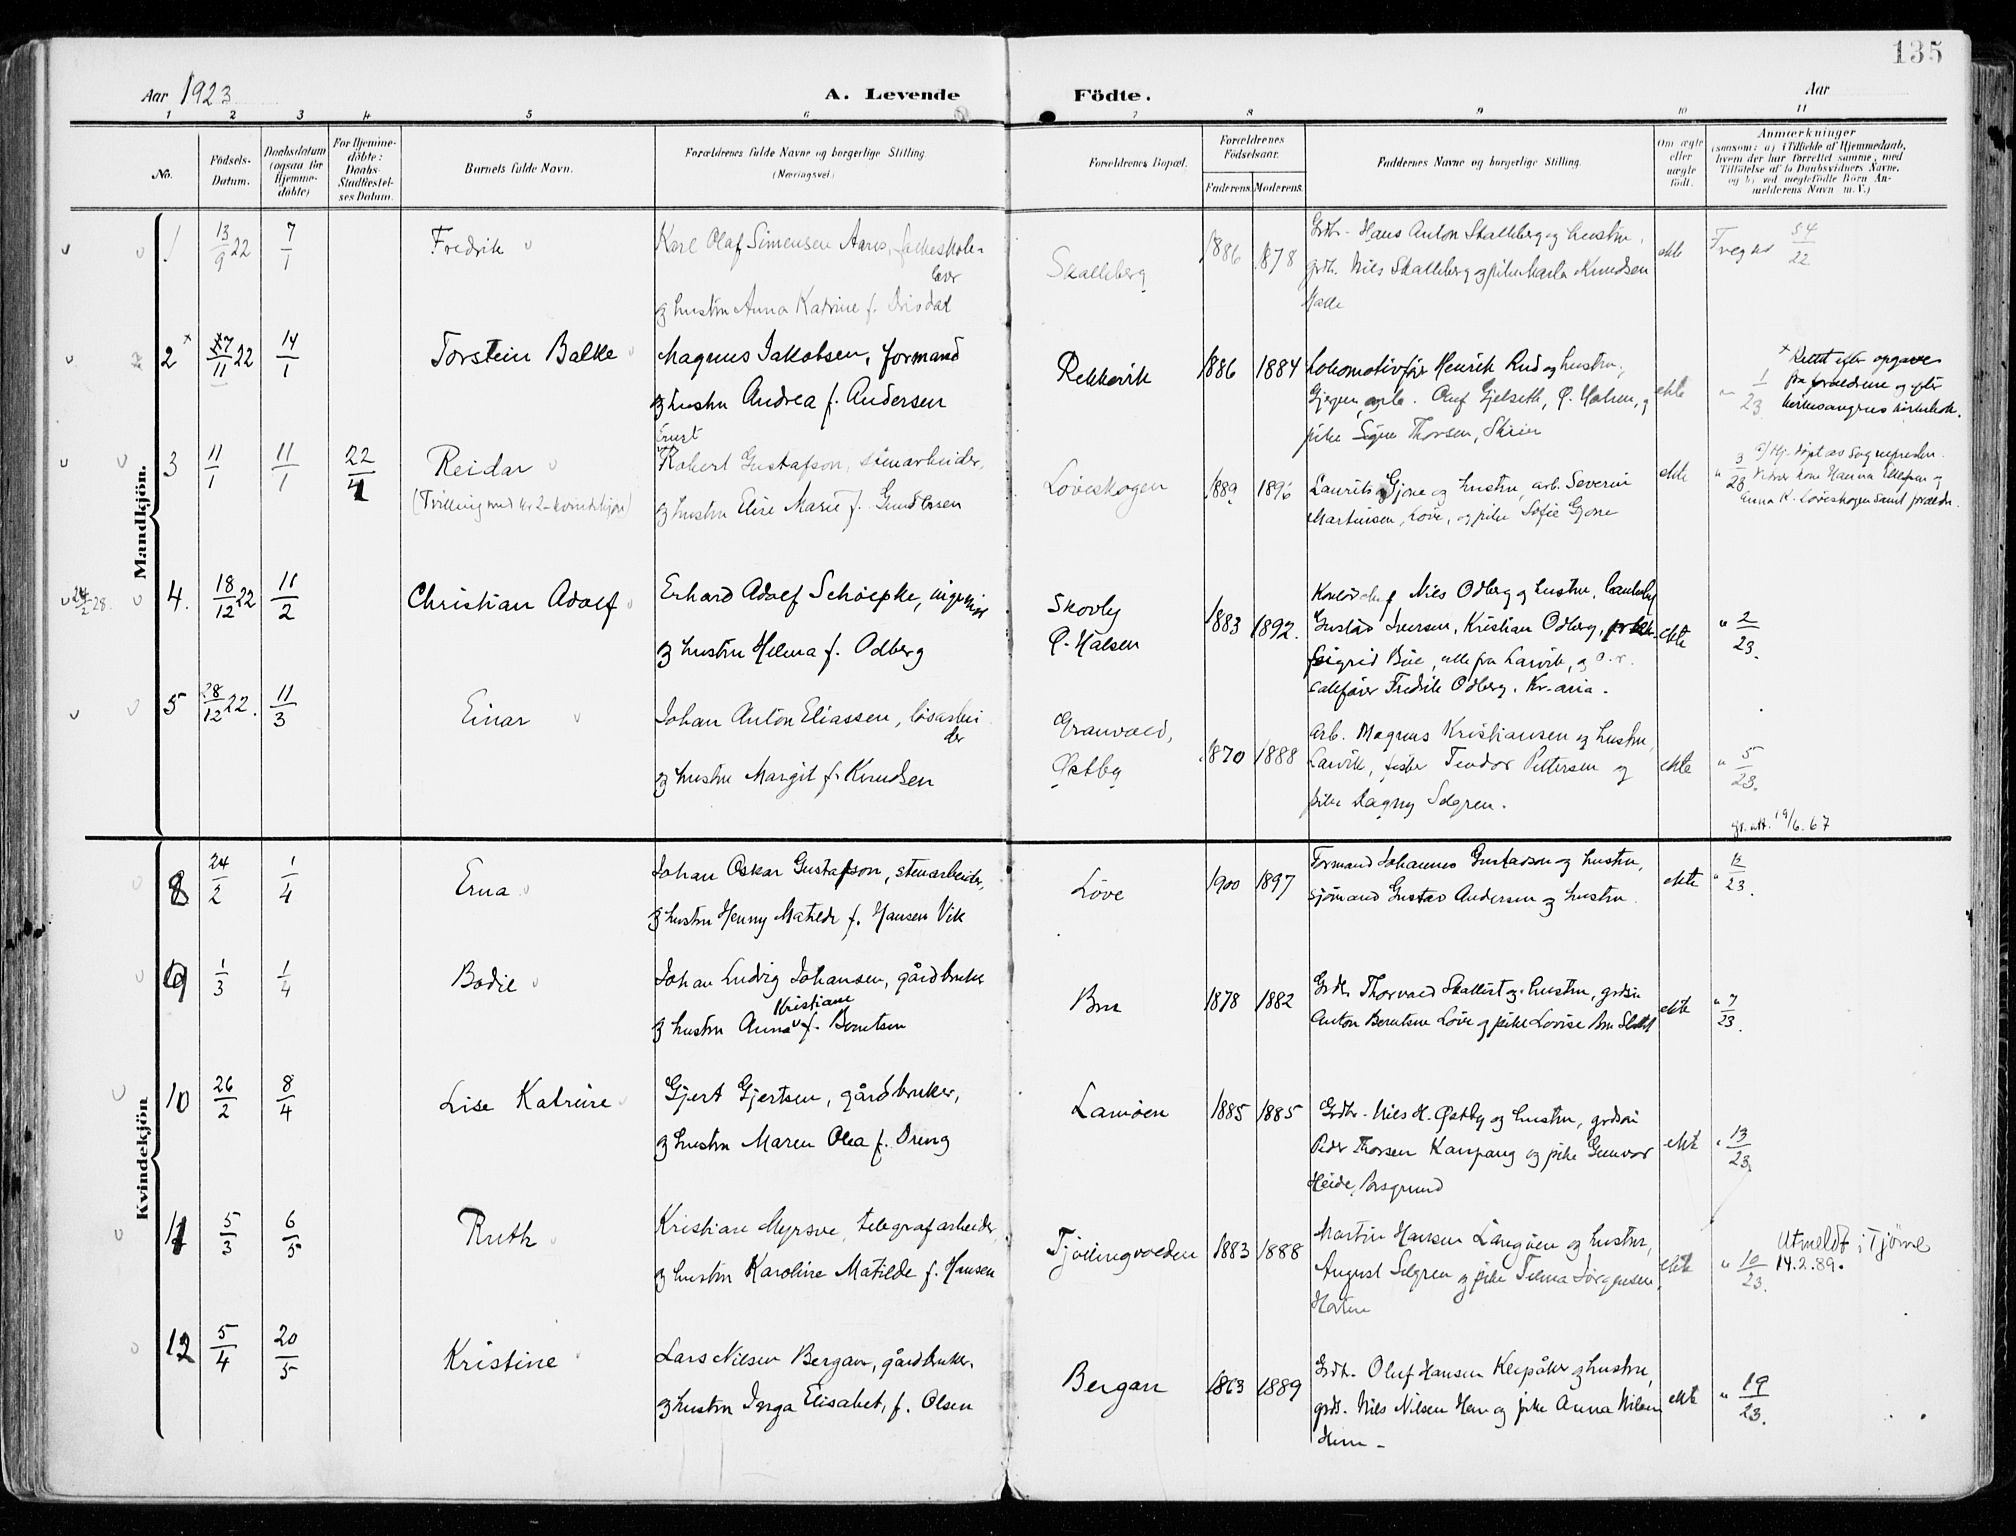 135
Aar 1923 A. Levende Födte. Aar
1 2 3 4 5 6 7 8 9 10 11
No. Födsels-Datum. Daabsdatum (ogsaa for Hjemme-döbte) For Hjemme-döbte: Daabs-Stadfæstel-ses Datum. Barnets fulde Navn. Forældrenes fulde Navne og borgerlige Stilling (Næringsvei) Forældrenes Bopæl. Forældrenes Födselsaar. Faderens. Moderens. Faddernes Navne og borgerlige Stilling. Om ægte eller uægte födt. Anmærkninger (saasom: a) i Tilfælde af Hjemmedaab, hvem der har forrettet samme, med Tilföielse af to Daabsvidners Navne, og b) ved uægtefödte Börn An-melderens Navn m. V.)
Mandkjön.
1 13/9 22 7/1 Fredrik Karl Olaf Simensen Aarø,
og hustru Anna Katrine f.
Skalleberg 1886 1878 Grdbr. Hans Anton Skalleberg og hustru,
grdb. Nils Skalleberg og pike Marla Knudsen
ekte 54/22
2 x 27/11 22 14/1 Torstein Balke Magnus Jakobsen, formand
og hustru Andrea f. Andersen
Rekkevik 1886 1884 Lokomotivfør Henrik Rud og hustru,
Oluf Gjelseth, Ø. Halsen,
pike Signe Thorsen, Skien
ekte " 1/23 x Rettet efter opgave
fra forældrene og efter
3 11/1 11/1 22/4 Reidar
(Tvilling med nr 2 kvindekjøn)
Ernst
Robert Gustafson, stenarbeider,
og hustru Elise Marie f. Gundersen
Løveskogen 1889 1896 Laurits Gjone og hustru, arb. Severin
Martinsen, Løve, og pike Sofie Gjone
ekte " 3/23 a/ Hj. døpt av
Anna K. Løveskogen samt
24/2 28. 4. 18/12 22 11/2 Christian Adolf Erhard Adolf Schöepke, ingeniør
og hustru Helma f. Odberg
Skovly
Ø. Halsen 1883 1892. Nils Odberg og hustru,
Gustav Iversen, Kristian Odberg,
Sigrid Bøe, alle fra Larvik, og
Fredrik Odberg, Kr.ania.
ekte " 2/23.
5 28/12 22. 11/3 Einar Johan Anton Eliassen, løsarbei
der
og hustru Margit f. Knudsen
Granvold,
Østby 1870 1888 Arb. Magnus Kristiansen og hustru,
Larvik, Teodor Pettersen og
pike Dagny Solgren.
ekte " 5/23.
19/6.67
Kvindekjön
8 24/2 1/4 Erna Johan Oskar Gustafson, stenarbeider,
og hustru Henny Matilde f. Hansen Vik
Løve 1900 1897 Formand Johannes Gustavson og hustru,
sjømand Gustav Andersen og hustru.
ekte "
9 1/3 1/4 Bodil Johan Ludvig Johansen, gårdbruker
Kristiane
og hustru Anna f. Berntsen
Bru 1878 1882 Grdbr. Thorvald Skallist og hustru, grdsøn
Anton Berntsen Løve og pike Lovise Bru
ekte " 7/23.
10 26/2 8/4 Lise Katrine Gjert Gjertsen, gårdbruker,
og hustru Maren Olea f. Dreng
Lamøen 1885 1885 Grdbr. Nils H. Østby og hustru, grdsøn
Peder Thorsen Kaupang og pike Gunvor
Heide, Porsgrund
ekte " 13/23.
11 5/3 6/5 Ruth Kristian Myrsve, telegrafarbeider,
og hustru Karoline Matilde f. Hansen
Tjøllingvolden 1883 1888 Martin Hansen Langøen og hustru,
August Solgren og pike Telma Jørgensen,
Horten
ekte " 10/23. Utmeldt i Tjøme
14.2.89.
12 5/4 20/5 Kristine Lars Nilsen Bergan, gårdbruker,
og hustru Inga Elisabet, f. Olsen
Bergan 1863 1889 Grdbr. Oluf Hansen Klepåker og hustru,
grdb. Nils Nilsen Hem og pike Anna Nilsen
Hem -
ekte " 19/23.